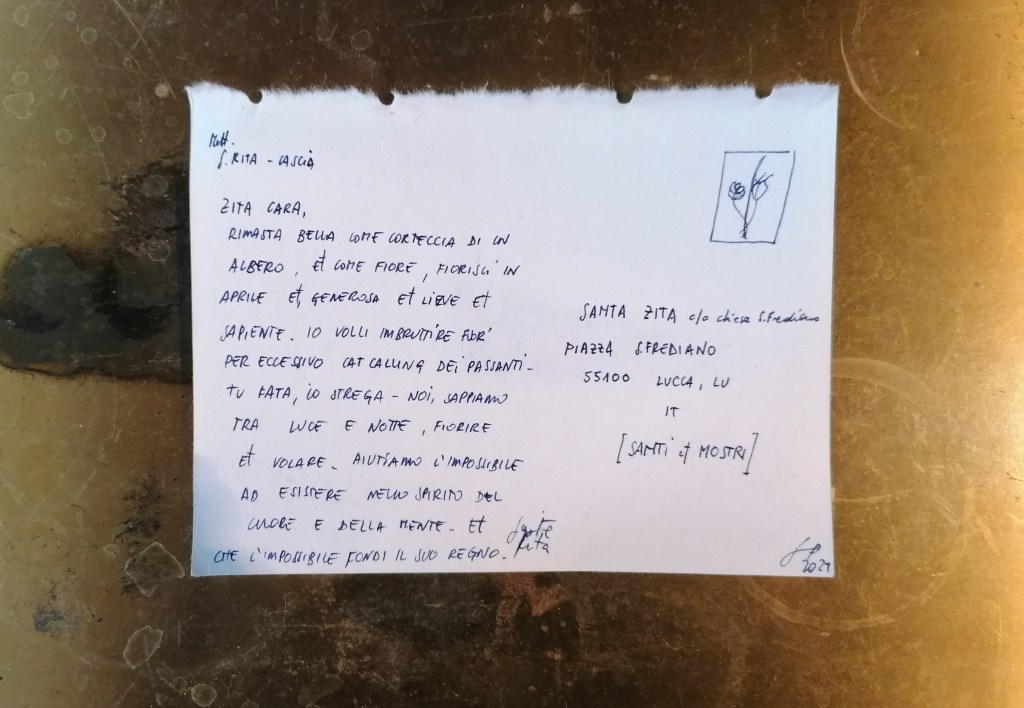 Mitt.
S. RITA - CASCIA
ZITA CARA,
RIMASTA BELLA COME CORTECCIA DI UN
ALBERO, Et COME FIORE, FIORISCI IN
APRILE Et, GENEROSA Et LIEVE Et
SAPIENTE. IO VOLLI IMBRUTTIRE FUOR'
PER ECCESSIVO CAT CALLING DEI PASSANTI-
TU FATA, io STREGA - NOI, SAPPIAMO
TRA LUCE E NOTTE, FIORIRE
Et VOLARE. AIUTIAMO L'IMPOSSIBILE
AD ESISTERE NELLO SPIRITO DEL
CUORE E DELLA MENTE. Et
CHE L'IMPOSSIBILE FONDI IL SUO REGNO.
Rita
SANTA ZITA c/o chiesa S. Frediano
PIAZZA S. FREDIANO
55100 LUCCA, LU
IT
[SANTI et MOSTRI]
2021